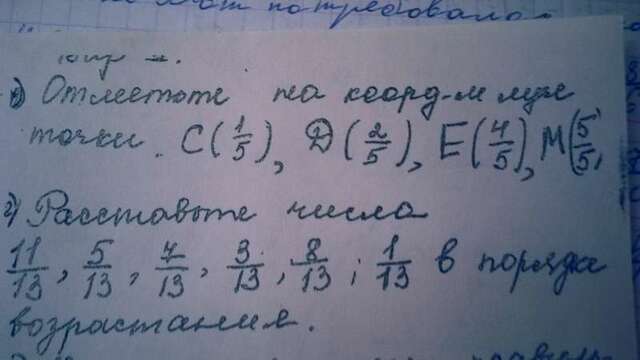 потребовало
в) Отметьте на коорд-м луче
точки. C(1/5), D(2/5), E(4/5), M(5/5)
г) Расставьте числа
11/13, 5/13, 7/13, 3/13, 8/13; 1/13 в порядке
возрастания.